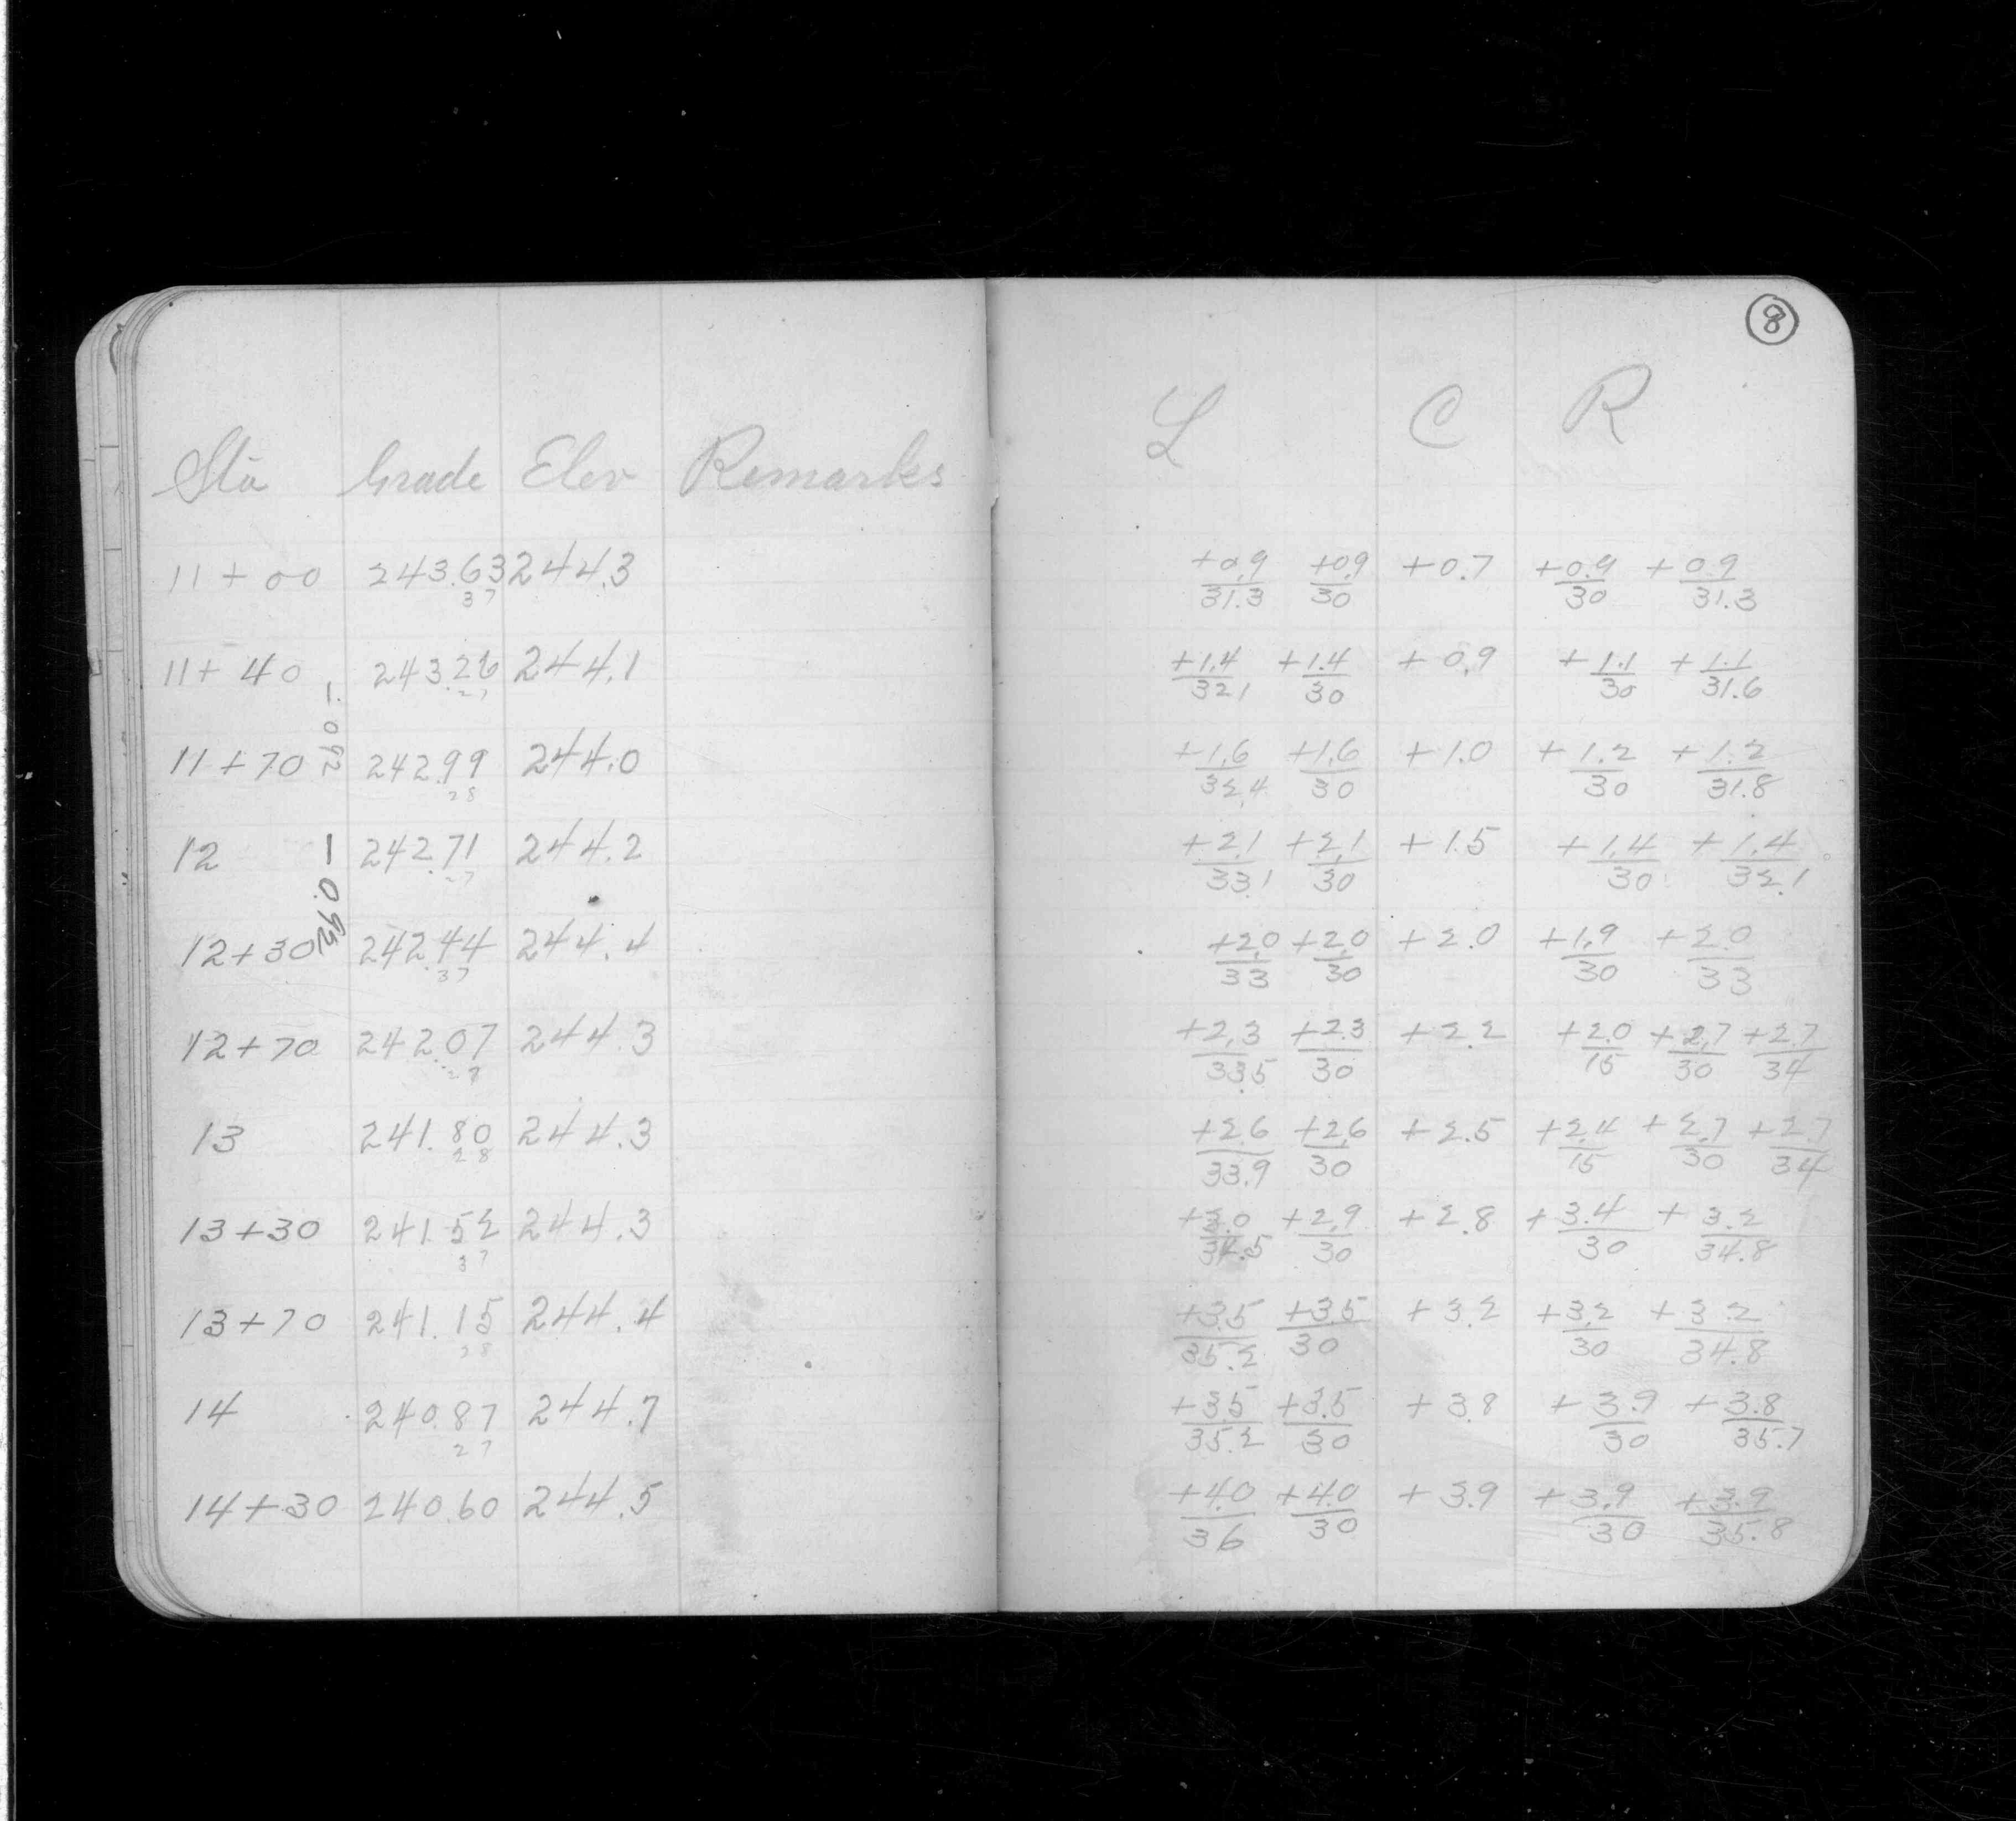 8
Sta Grade Elev Remarks L C R
11+00 243.63 244.3 +0.9/31.3 +0.9/30 +0.7 +0.9/30 +0.9/31.3
37
11+40 243.26 244.1 +1.4/32.1 +1.4/30 +0.9 +1.1/30 +1.1/31.6
27
11+70 242.99 244.0 +1.6/32.4 +1.6/30 +1.0 +1.2/30 +1.2/31.8
28
12 242.71 244.2 +2.1/33.1 +2.1/30 +1.5 +1.4/30 +1.4/32.1
27
- 0.92
12+30 242.44 244.4 +2.0/33 +2.0/30 +2.0 +1.9/30 +2.0/33
37
12+70 242.07 244.3 +2.3/33.5 +2.3/30 +2.2 +2.0/15 +2.7/30 +2.7/34
27
13 241.80 244.3 +2.6/33.9 +2.6/30 +2.5 +2.4/15 +2.7/30 +2.7/34
28
13+30 241.52 244.3 +3.0/34.5 +2.9/30 +2.8 +3.4/30 +3.2/34.8
37
13+70 241.15 244.4 +3.5/35.2 +3.5/30 +3.2 +3.2/30 +3.2/34.8
28
14 240.87 244.7 +3.5/35.2 +3.5/30 +3.8 +3.9/30 +3.8/35.7
27
14+30 240.60 244.5 +4.0/36 +4.0/30 +3.9 +3.9/30 +3.9/35.8